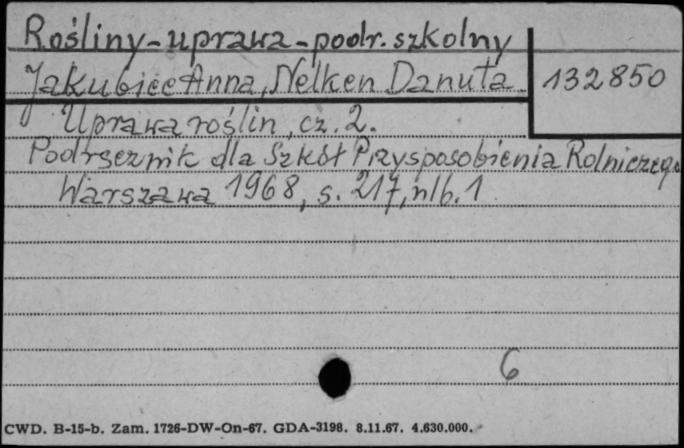 Rośliny-uprawa-podr. szkolny
Jakubiec Anna, Nelken Danuta 132850
Uprawa roślin, cz. 2.
Podręcznik dla Szkół Przysposobienia Rolniczego
Warszawa 1968, s. 217, nlb. 1
6
CWD. B-15-b. Zam. 1726-DW-On-67. GDA-3198. 8.11.67. 4.630.000.